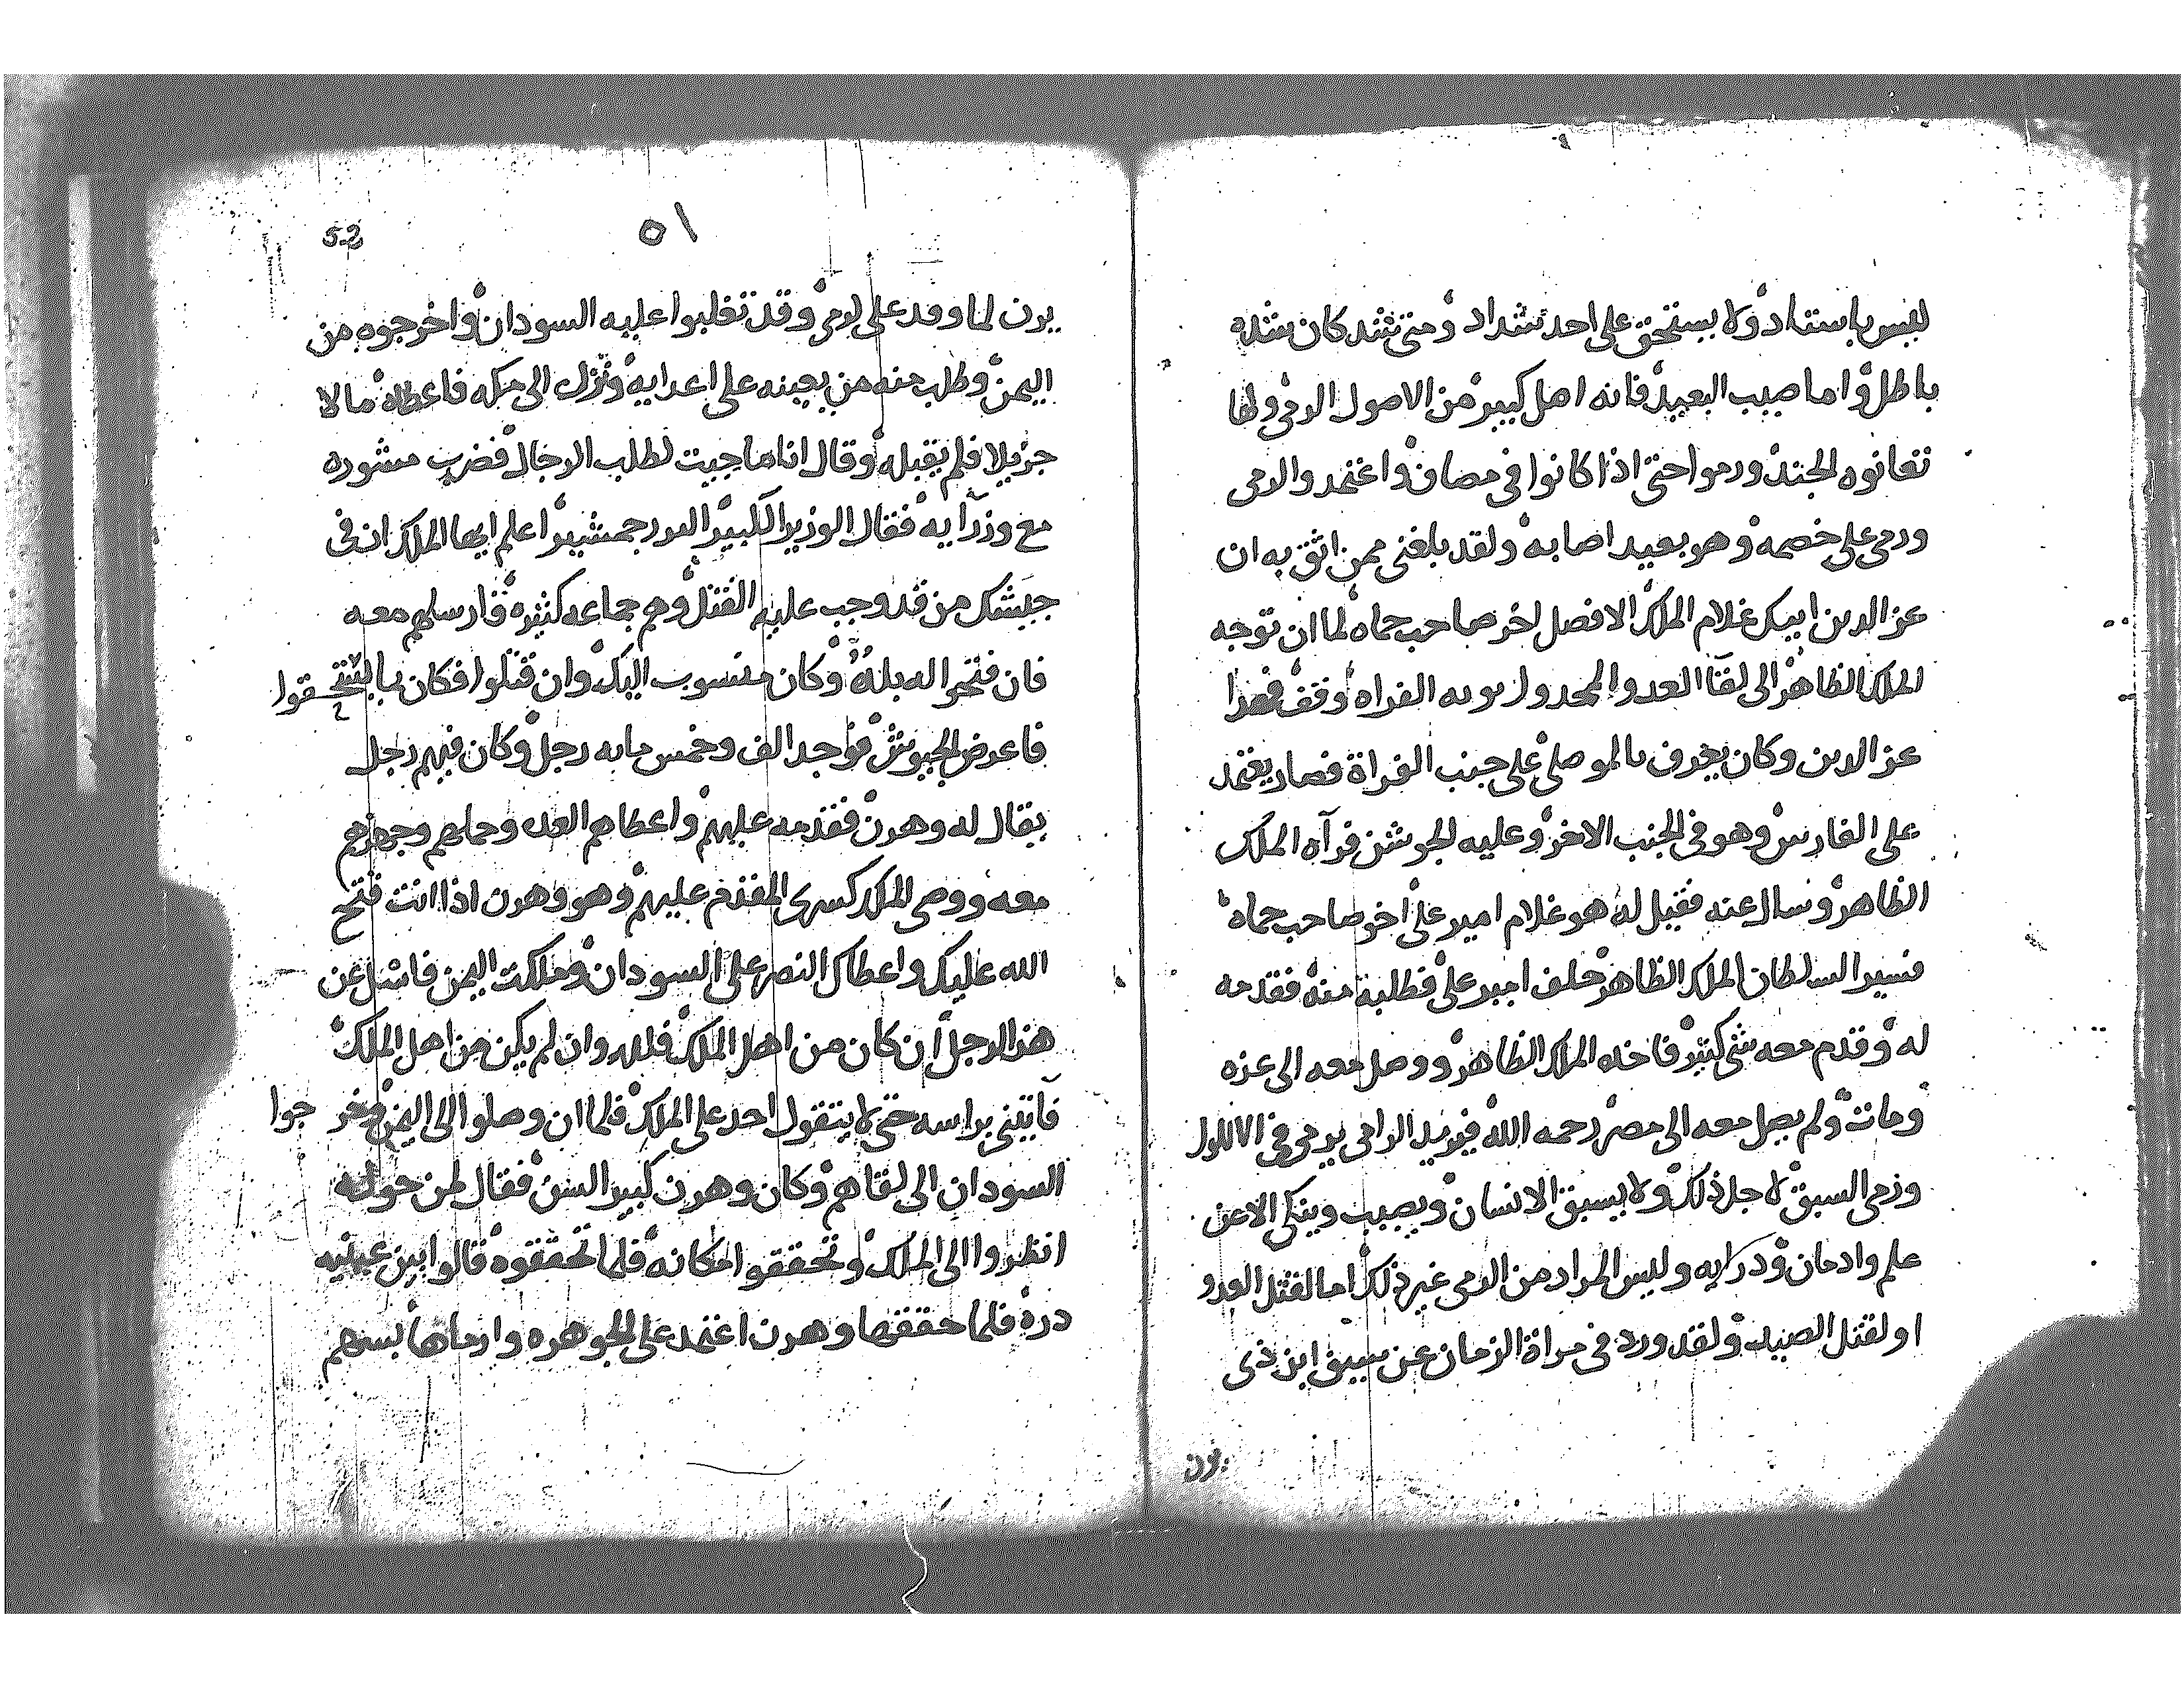 ليس باستناد ولا يستحق على احد شداد ومتى شد كان شده
باطل واما صيب البعيد فانه اصل كبير من الاصول الرمى ولها
تعانوه الجند ورموا حتى اذا كانوا فى مصاف واعتمد والرمى
ورمى على خصمه وهو بعيد اصابه ولقد بلغنى ممن اثق به ان
عز الدين ايبك غلام الملك الافضل اخو صاحب حماه لما ان توجه
الملك الظاهر الى لقآ العدو المخدول الفراه وقف
عز الدين وكان يعرف بالموصلى على جنب الفراة فصار يعتمد
على الفارس وهو فى الجنب الاخر وعليه الجوشن فرآه الملك
الظاهر وسال عنه فقيل له هو غلام امير على اخو صاحب حماه
فسير السلطان الملك الظاهر خلف امير على فطلبه منه فقدمه
له وقدم معه شى كثير فاخده الملك الظاهر ووصل معه الى غزه
ومات ولم يصل معه الى مصر رحمه الله فيريد الرامى يرمى فى الاول
ورمى السبق لاجل ذلك ولا يسبق الانسان ويصيب وينكى الا عن
علم وادمان ودرايه وليس المراد من الرمى غير ذلك اما لقتل العدو
او لقتل الصيد ولقد ورد فى مراة الزمان عن سيف ابن ذى
يزن
52
٥١
يزن لما وفد على وقد تغلبوا عليه السودان واخرجوه من
اليمن وطلب منه من يعينه على اعدايه ونزل الى مكه فاعطاه مالا
جزيلا فلم يقبله وقال انا ما جيت لطلب الرجال فضرب مشوره
مع وزرآيه فقال الوزير الكبير اعلم ايها الملك ان فى
جيشك من قد وجب عليه القتل وهم جماعه كثيره فارسلهم معه
فان فتحوا له بلده وكان منسوب اليك وان قتلوا فكان بما يستحقوا
فاعرض الجيوش فوجد الف وخمس مايه رجل وكان فيهم رجل
يقال له وهرن فقدمه عليهم واعطاهم العدد وحملهم وجهزهم
معه ووصى الملك كسرى المقدم عليهم وهو وهرن اذا انت فتح
الله عليك واعطاك النصر على السودان وملكت اليمن فاسئل عن
هذا الرجل ان كان من اهل الملك وان لم يكن من اهل الملك
فآتنى براسه حتى لا يتقول احد على الملك فلما ان وصلوا الى اليمن وخرجوا
السودان الى لقاهم وكان وهرن كبير السن فقال لمن حوله
انظروا الى الملك وتحققوا مكانه فلما تحققوه قالوا بين عينيه
درة فلما حققها وهرن اعتمد على الجوهره وارماها بسهم